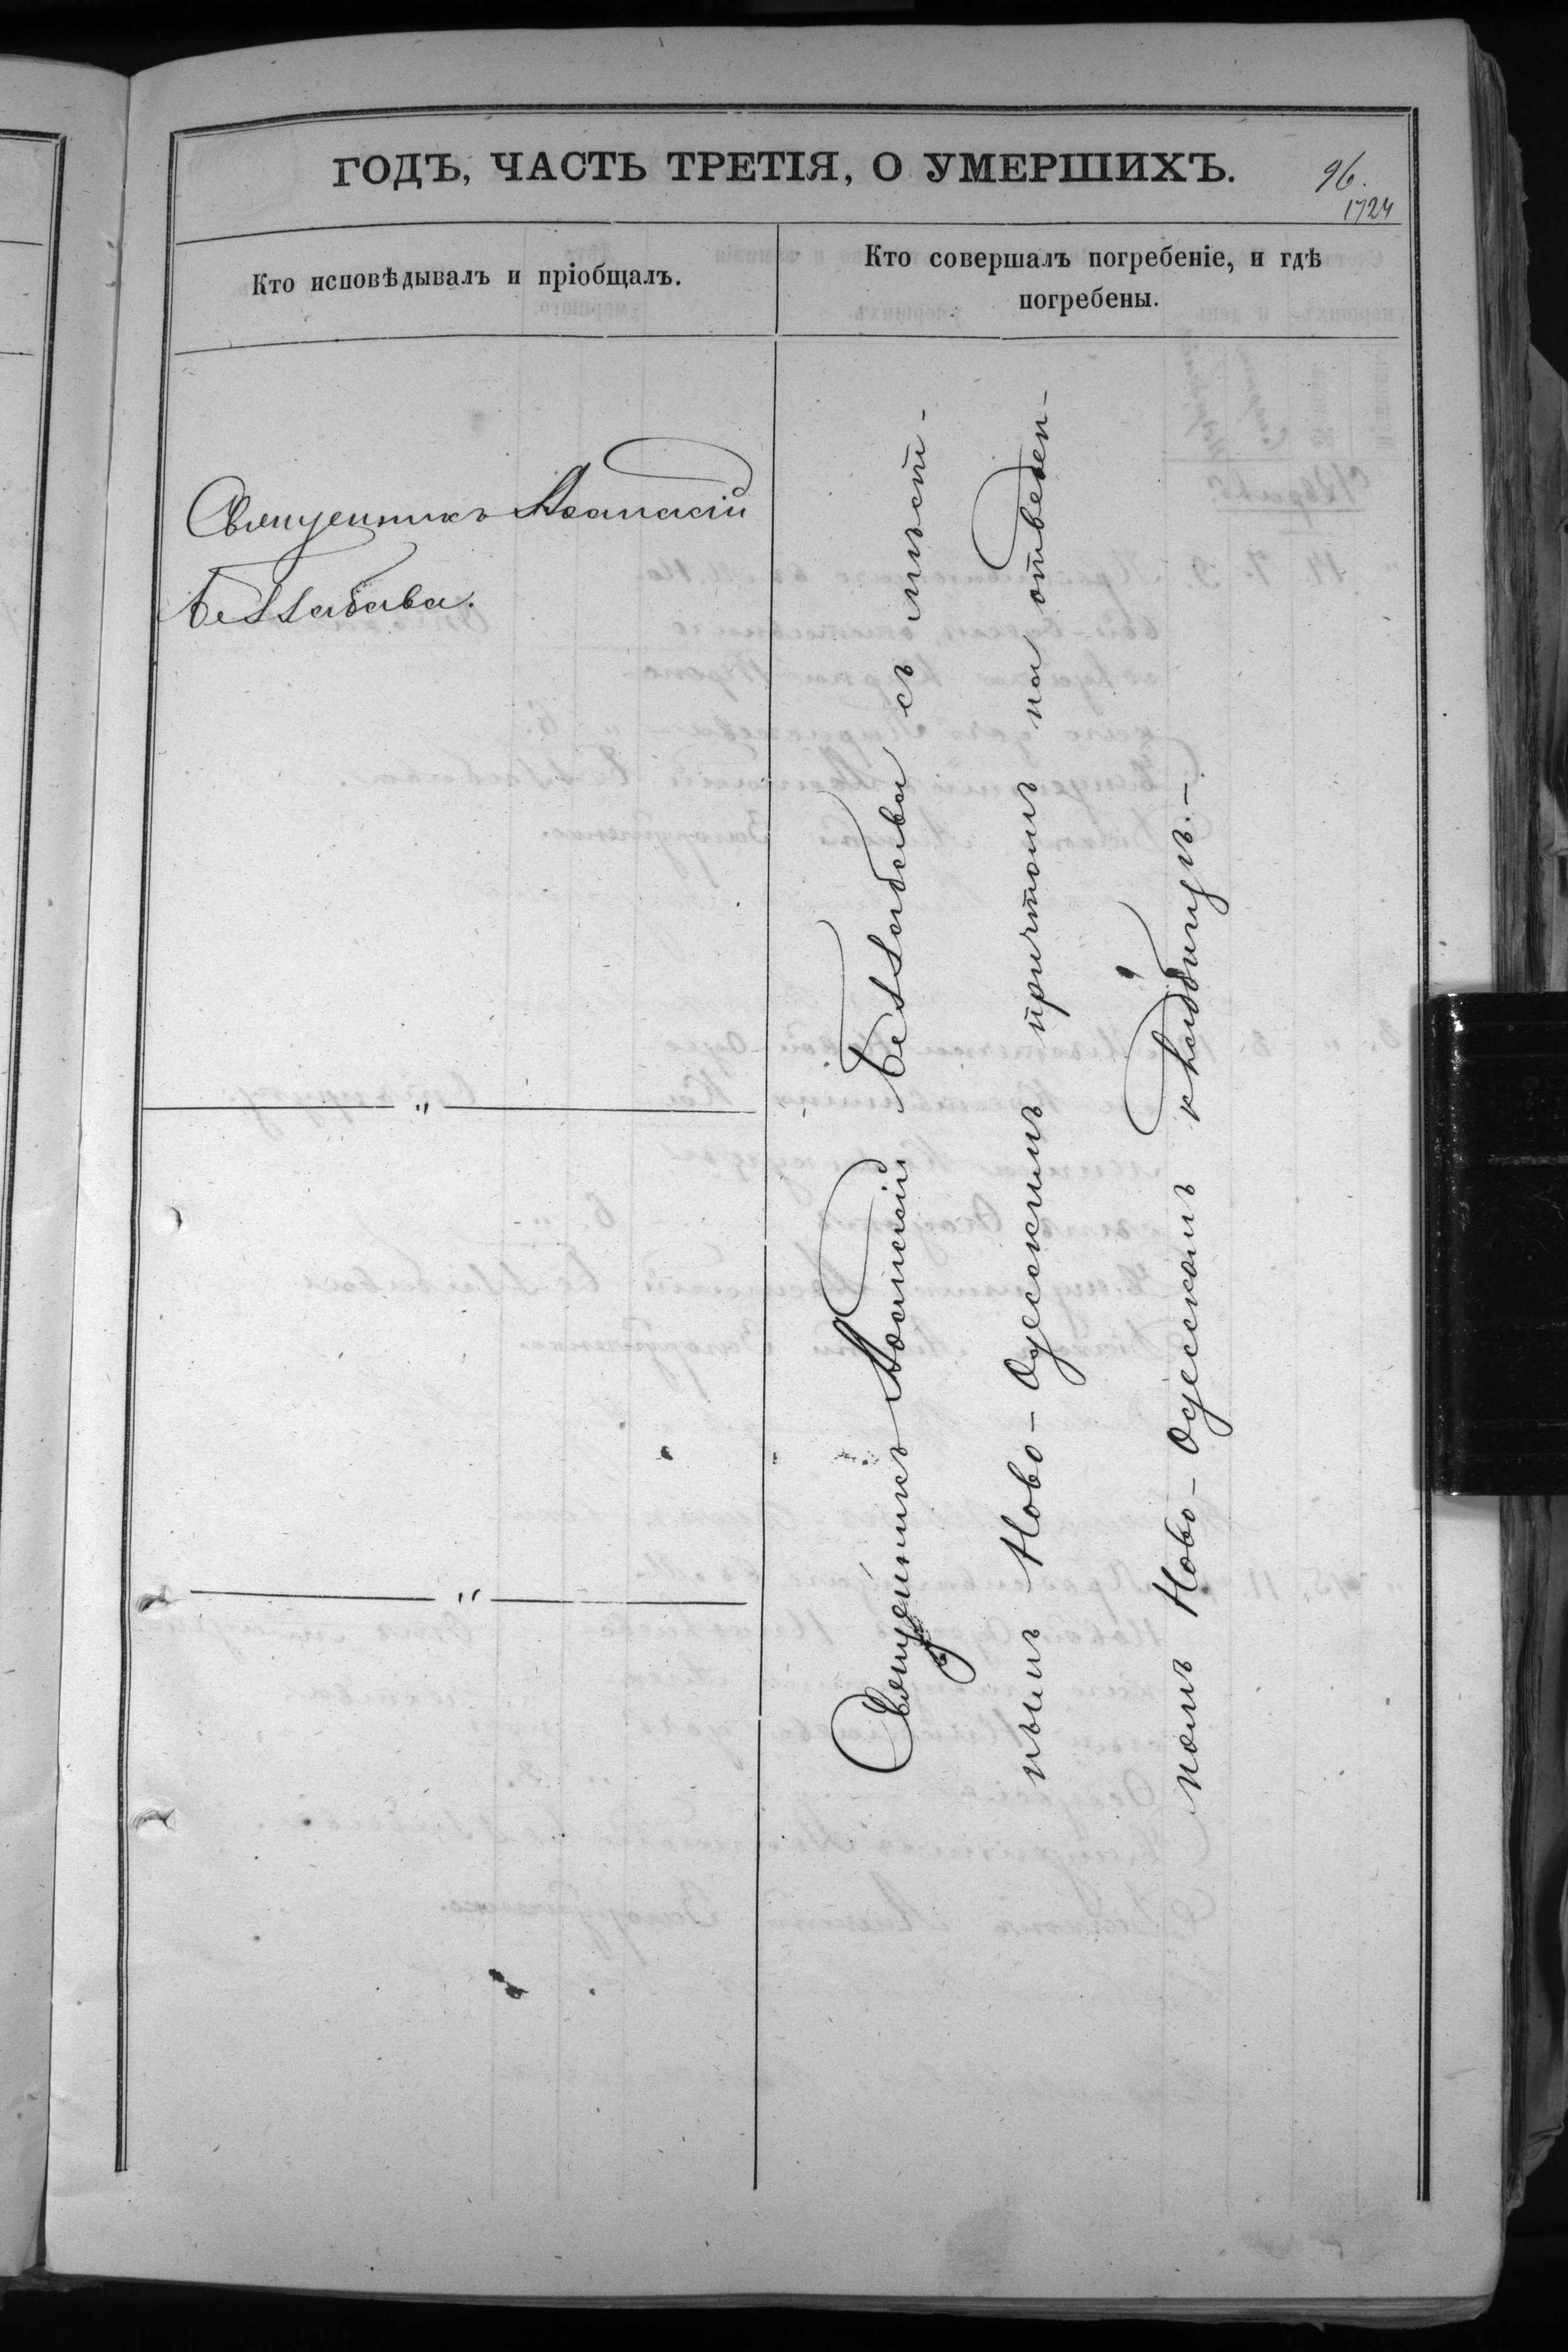 ГОДЪ, ЧАСТЬ ТРЕТІЯ, О УМЕРШИХЪ.
96.
1724
Кто исповѣдывалъ и пріобщалъ.
Кто совершалъ погребеніе, и гдѣ
погребены.
Священникъ
"
"
Священникъ съ мѣст-
нымъ Ново-Одесскимъ причтомъ на отведен-
номъ Ново-Одесскомъ кладбищѣ.-